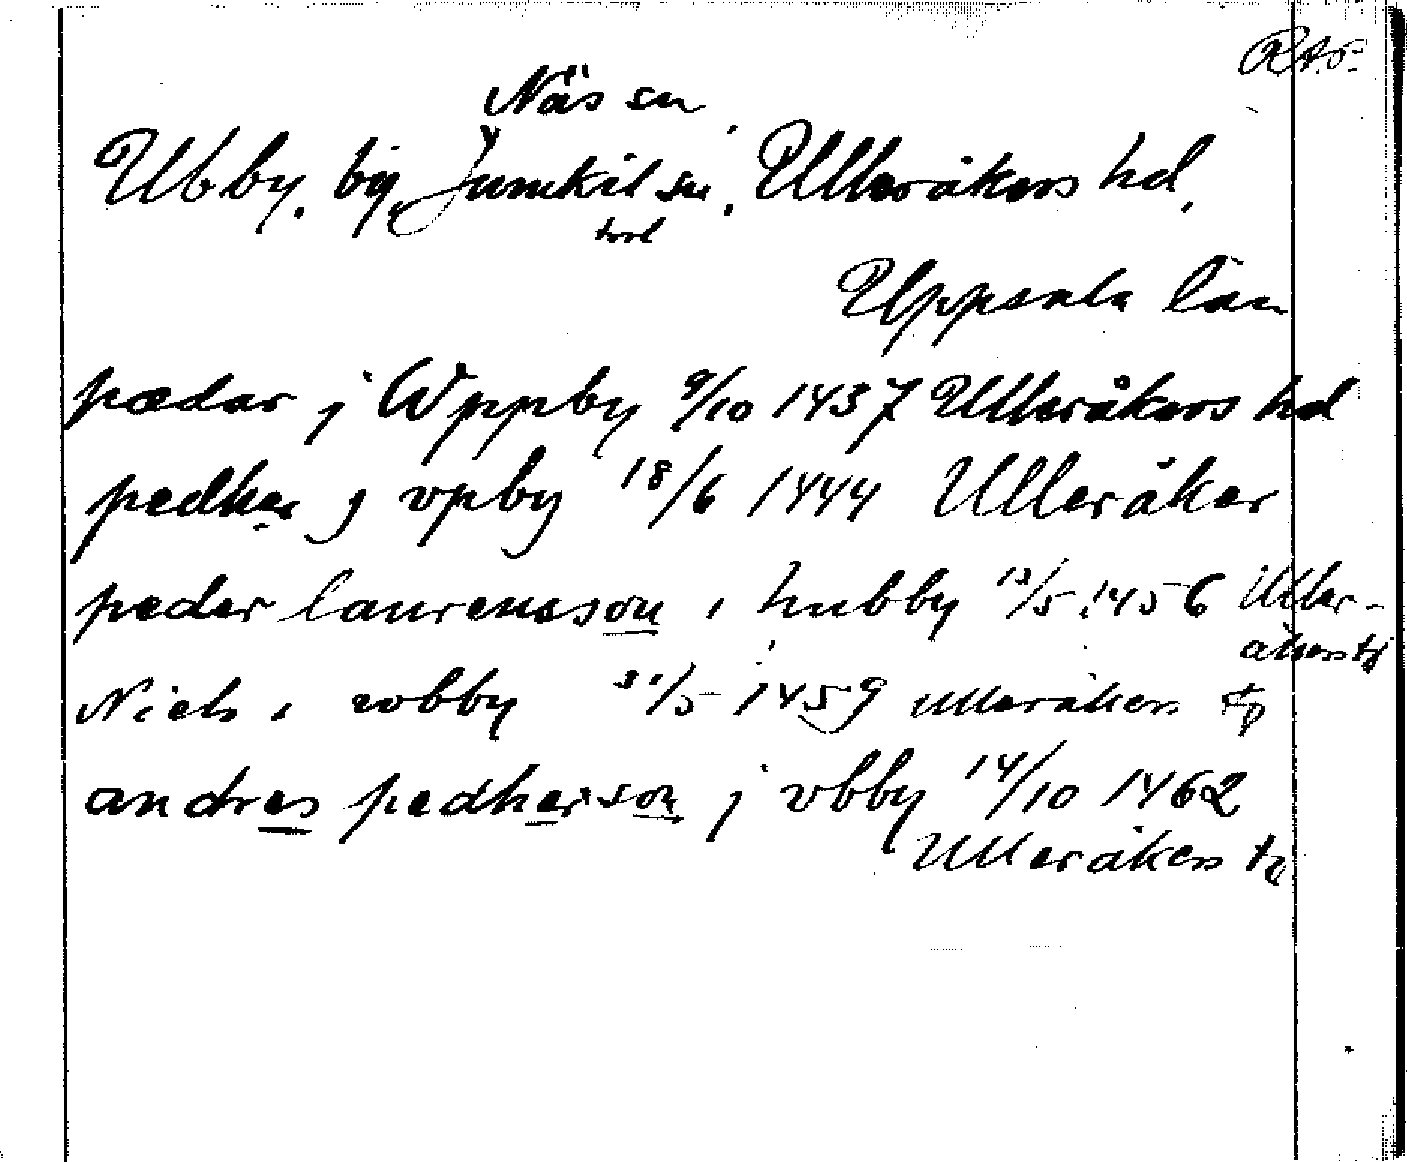 RAP.
Näs sn
Ubby, by, Jumkil sn, Ulleråkers hd,
Uppsala län
pædar j Wppby 9/10 1437 Ulleråkers hd
pedher j vpby 18/6 1444 Ulleråker
peder laurensson i hubby 13/5 1456 Uller-
åkers td
Niels i wbby 31/5 1459 Ulleråkers
andres pedherson j vbby 14/10 1462
Ulleråkers td